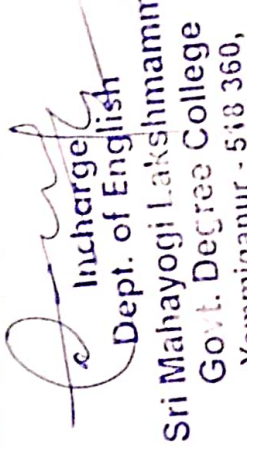 Incharge
Dept. of English
Sri Mahayogi Lakshmamm
Govt. Degree College
Yemmiganur - 518 360,